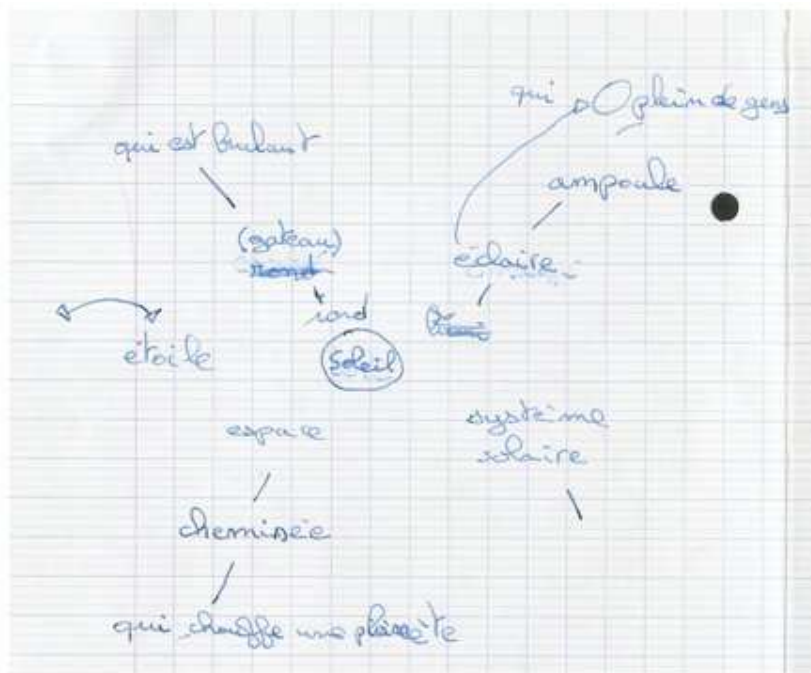 qui plein de gens
qui est brulant
ampoule
(gateau)
rond
éclaire
rond
étoile
soleil
espace
système
solaire
cheminée
qui chauffe une planète